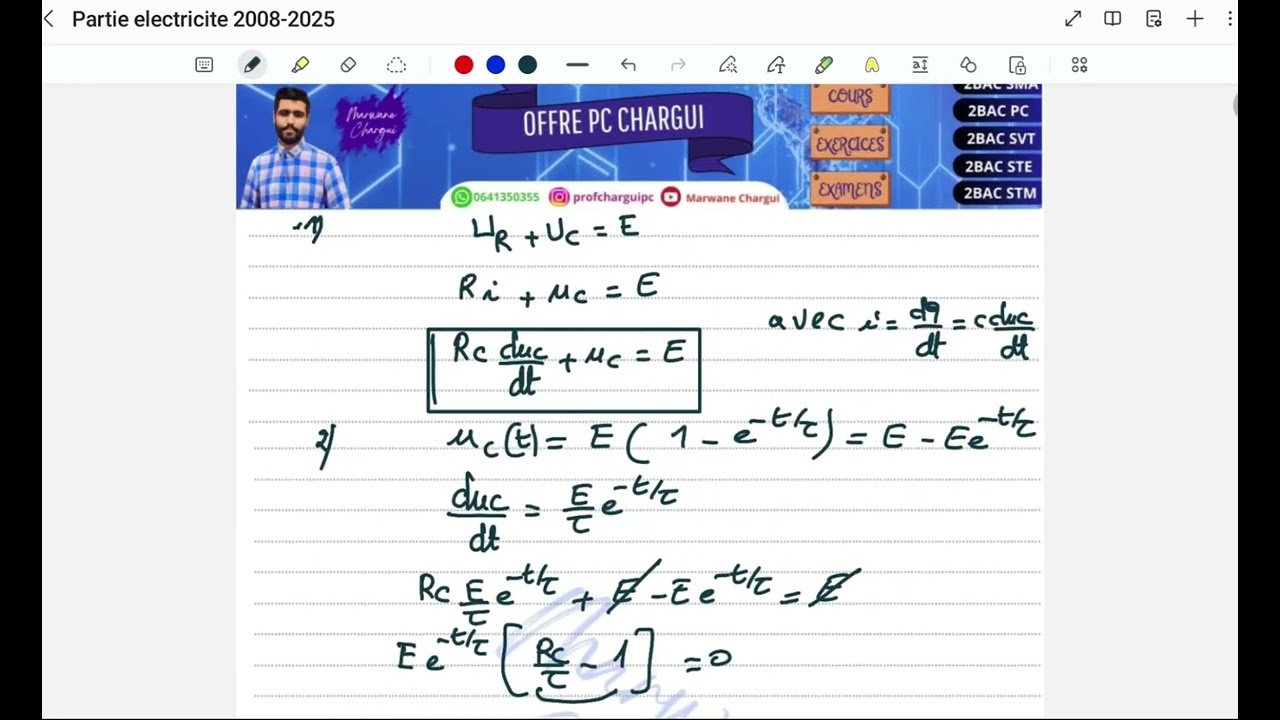 Partie electricite 2008-2025
Marwane Chargui
OFFRE PC CHARGUI
COURS
EXERCICES
EXAMENS
2BAC SMA
2BAC PC
2BAC SVT
2BAC STE
2BAC STM
0641350355 profcharguipc Marwane Chargui
1) U_R + U_C = E
Ri + u_C = E
avec i = dq/dt = C duc/dt
RC duc/dt + u_C = E
2) u_C(t) = E ( 1 - e^{-t/τ} ) = E - Ee^{-t/τ}
duc/dt = E/τ e^{-t/τ}
RC E/τ e^{-t/τ} + E - Ee^{-t/τ} = E
E e^{-t/τ} [ RC/τ - 1 ] = 0